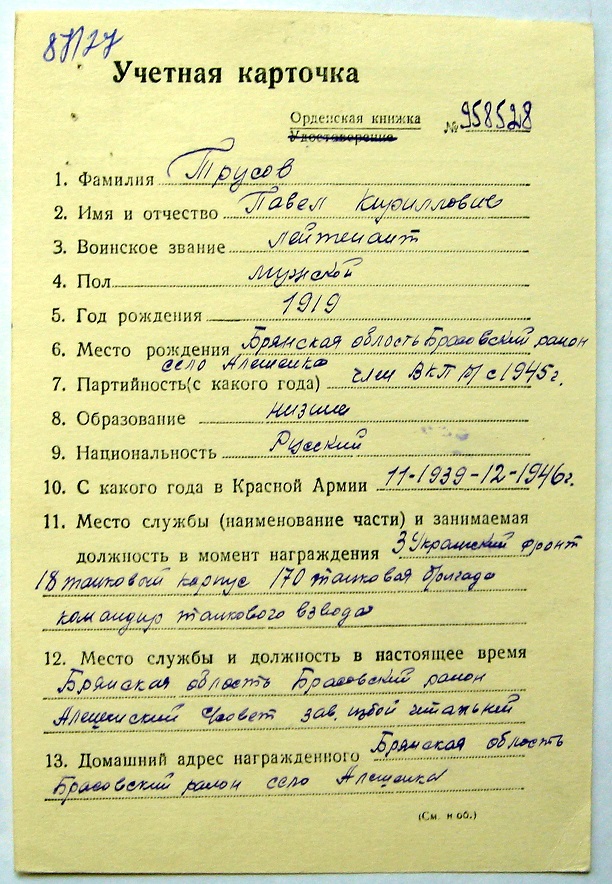 87127
Учетная карточка
Орденская книжка
Удостоверение № 958528
1. Фамилия Трусов
2. Имя и отчество Павел Кириллович
3. Воинское звание лейтенант
4. Пол мужской
5. Год рождения 1919
6. Место рождения Брянская область Брасовский район
село Алешенка
7. Партийность(с какого года) член ВКП/б/ с 1945г.
8. Образование низшее
9. Национальность Русский
10. С какого года в Красной Армии 11-1939-12-1946г.
11. Место службы (наименование части) и занимаемая
должность в момент награждения 3 Украинский фронт
18 танковый корпус 170 танковая бригада
командир танкового взвода
12. Место службы и должность в настоящее время
Брянская область Брасовский район
Алешинский с/совет зав. избой читальней
13. Домашний адрес награжденного Брянская область
Брасовский район село Алешенка
(См. н об.)